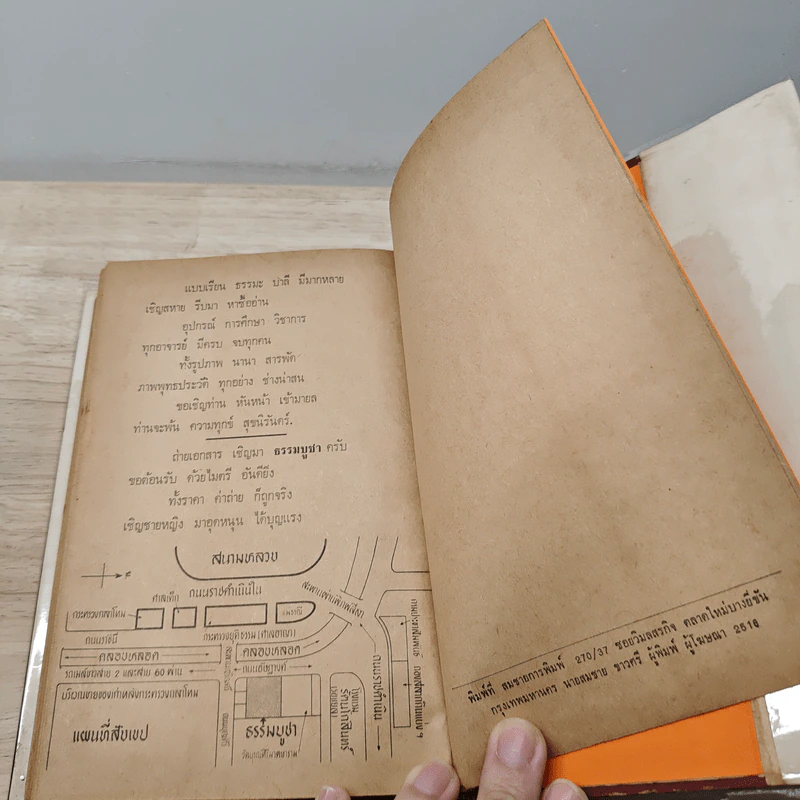 แบบเรียน ธรรมะ บาลี มีมากหลาย
เชิญสหาย รีบมา หาซื้ออ่าน
อุปกรณ์ การศึกษา วิชาการ
ทุกอาจารย์ มีครบ จบทุกคน
ทั้งรูปภาพ นานา สารพัด
ภาพพุทธประวัติ ทุกอย่าง ช่างน่าสน
ขอเชิญท่าน หันหน้า เข้ามายล
ท่านจะพ้น ความทุกข์ สุขนิรันดร์.
ถ่ายเอกสาร เชิญมา ธรรมบูชา ครับ
ขอต้อนรับ ด้วยไมตรี อันดียิ่ง
ทั้งราคา ค่าถ่าย ก็ถูกจริง
เชิญชายหญิง มาอุดหนุน ได้บุญแรง
สนามหลวง
ถนนราชดำเนินใน
ศาลเด็ก
กระทรวงกลาโหม
กระทรวงยุติธรรม (ศาลอาญา)
ถนนราชินี
คลองหลอด
คลองหลอด
รถเมล์ขาวสาย 2 และสาย 60 ผ่าน
ถนนอัษฎางค์
บริเวณขายของเก่าหลังกระทรวงกลาโหม
แผนที่สังเขป
ธรรมบูชา
โรงแรม
รัตนโกสินทร์
ถนนราชดำเนิน
พิมพ์ที่ สมชายการพิมพ์ 270/37 ซอยวิมลสรกิจ ตลาดใหม่บางยี่ขัน
กรุงเทพมหานคร นายสมชาย ขาวศรี ผู้พิมพ์ ผู้โฆษณา